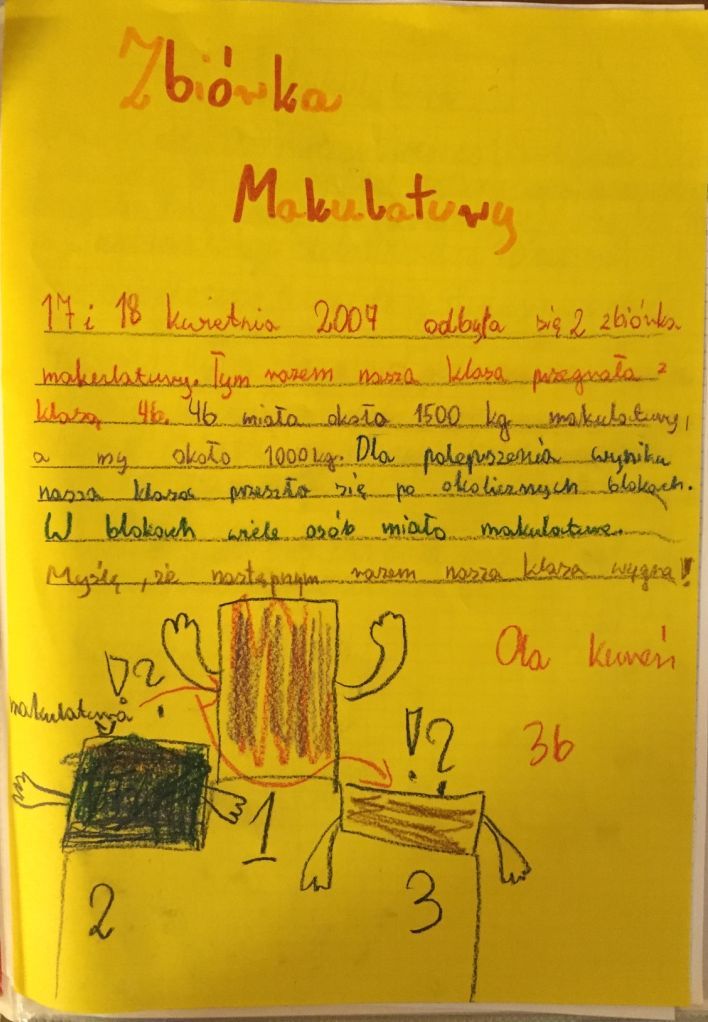 Zbiórka
Makulatury
17 i 18 kwietnia 2007 odbyła się 2 zbiórka
makulatury. Tym razem nasza klasa przegrała z
klasą 4b. 4b miała około 1500 kg makulatury,
a my około 1000 kg. Dla polepszenia wyniku
nasza klasa przeszła się po okolicznych blokach.
W blokach wiele osób miało makulaturę.
Myślę, że następnym razem nasza klasa wygra!
Ola
3b
!?
makulatura
!?
1
2
3